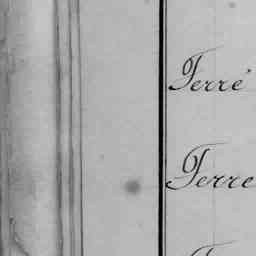 Terré
Terre